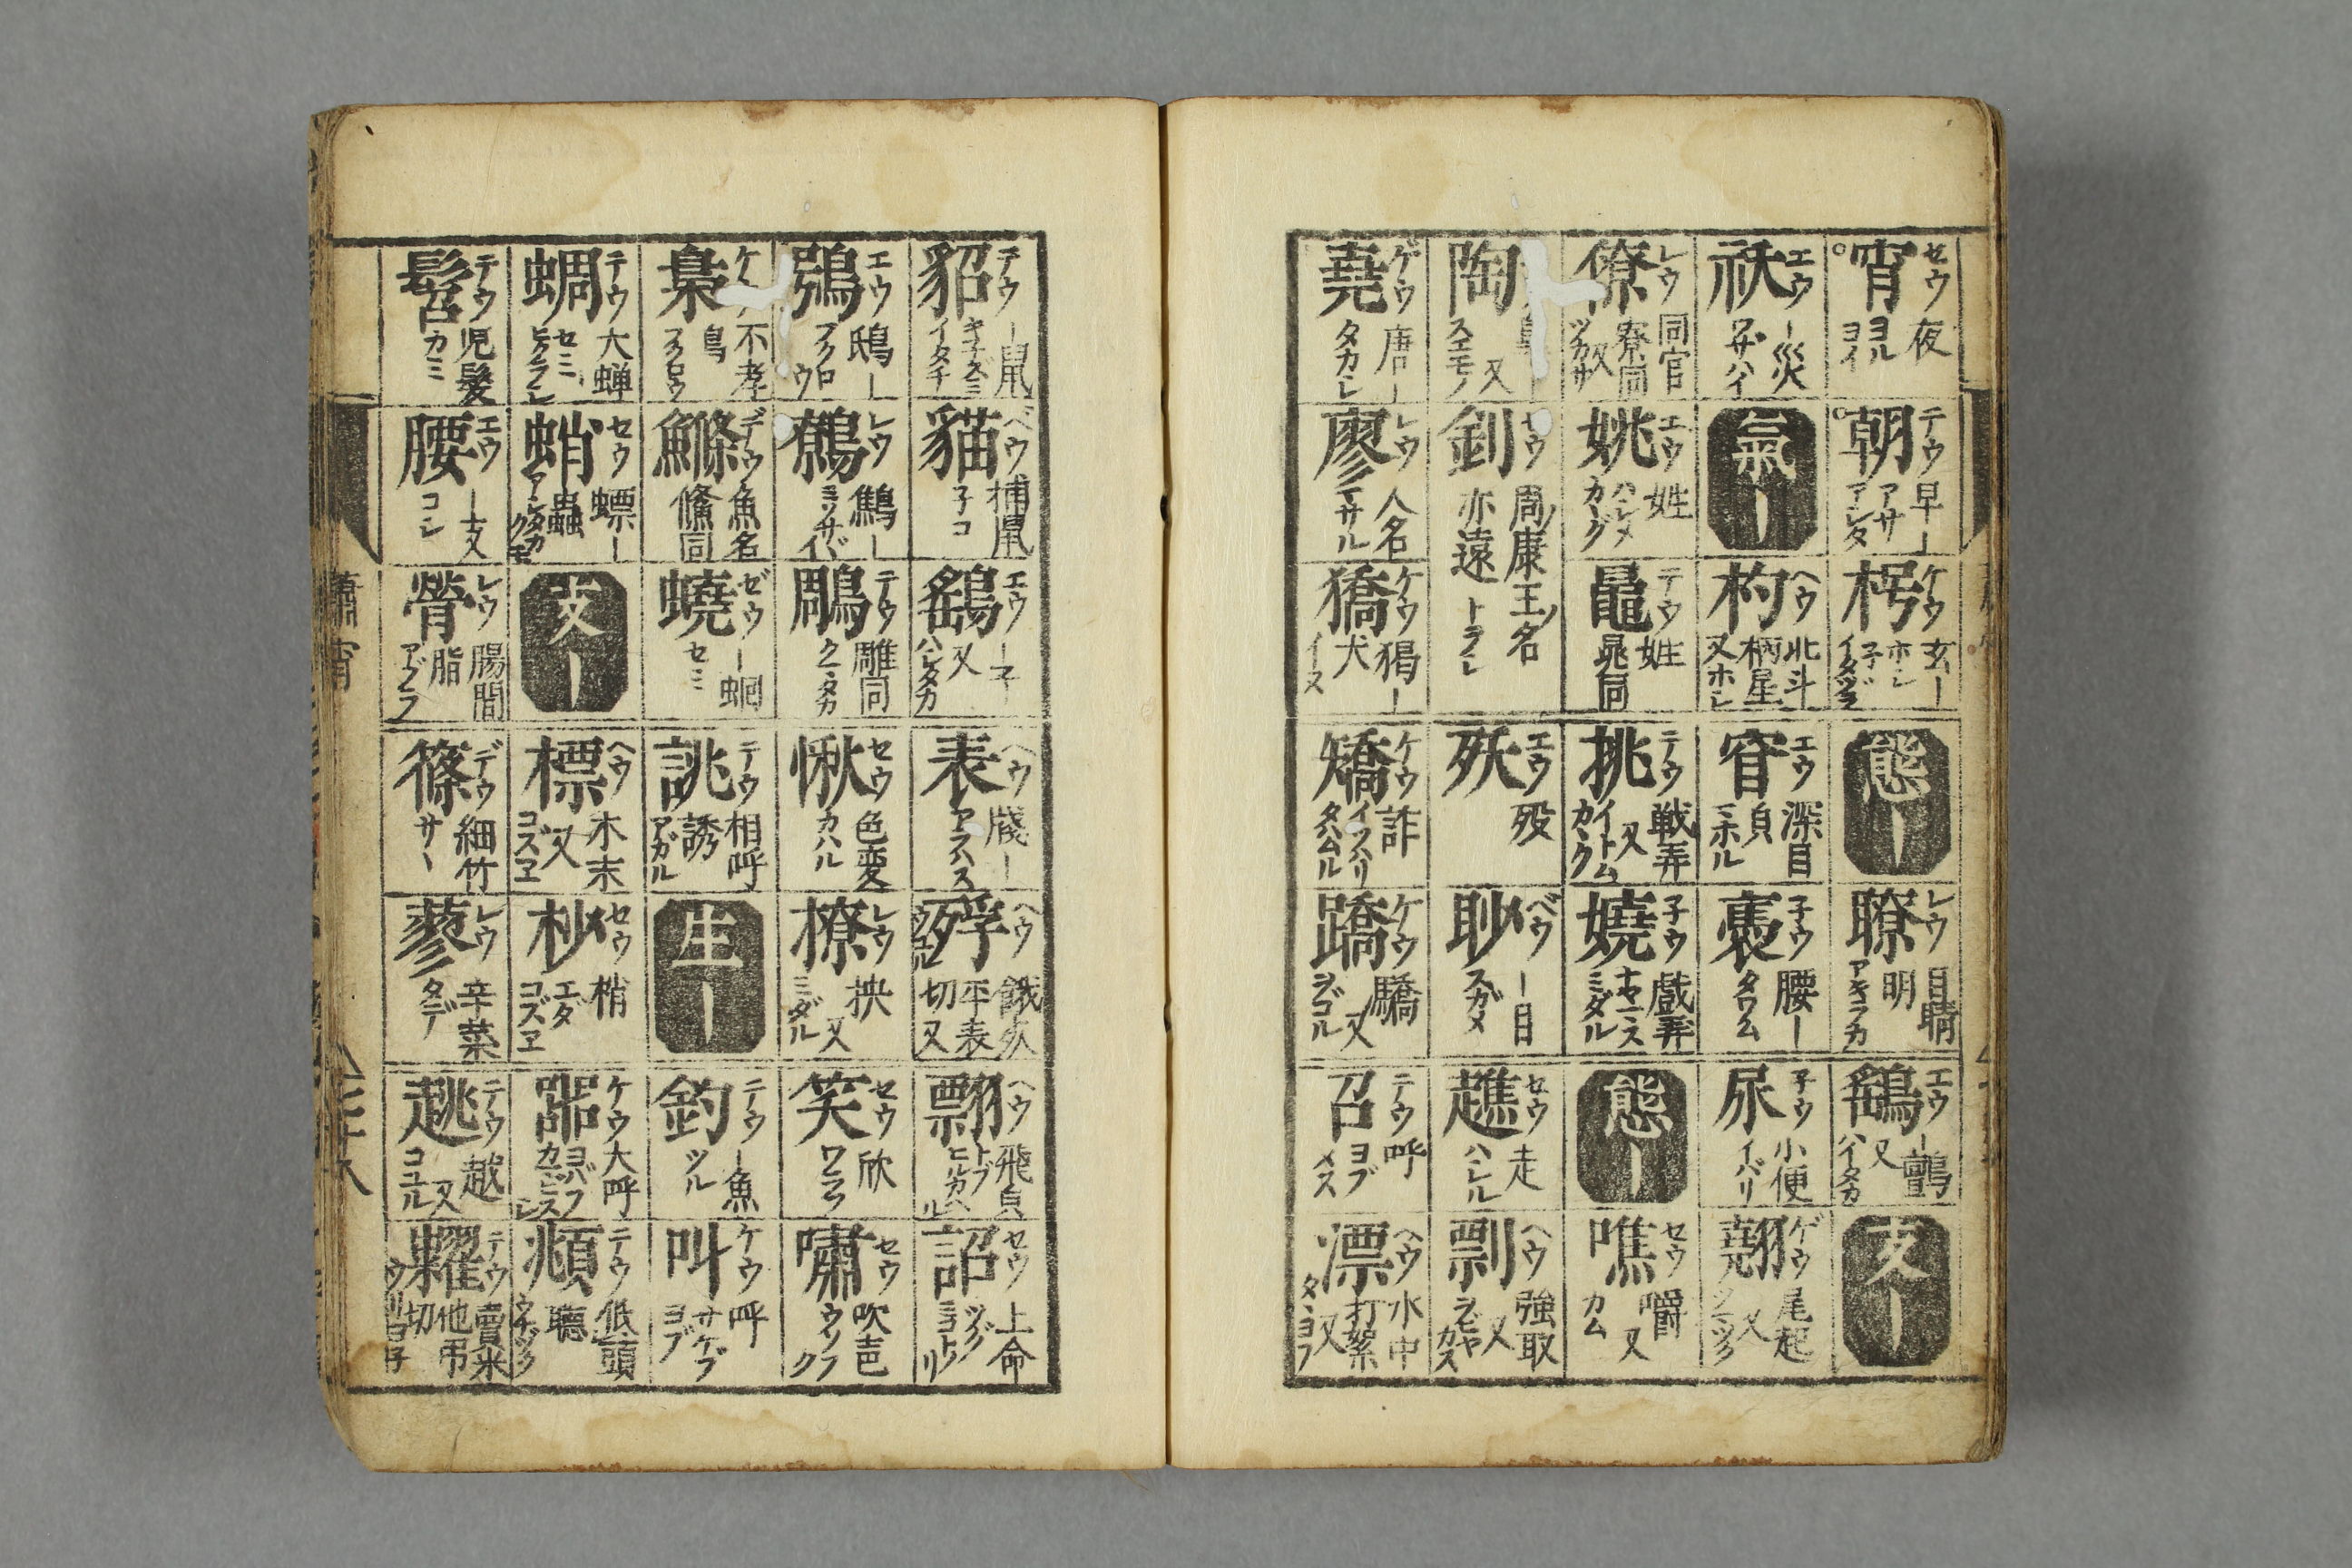 宵 セウ 夜 ヨル ヨイ
朝 テウ 早ー アサ アシタ
枵 ケウ 玄ー
態ー
瞭 レウ 目睛明 アキラカ
鷂 エウ 又 ハイタカ
支ー
祅 エウ ー災 ワザハイ
氣ー
杓 ヘウ 北斗柄星 又ホシ
窅 エウ 深目貌
裊 子ウ 腰ー タワム
尿 子ウ 小便 イバリ
翹 ゲウ 尾起 又
僚 レウ 同官 寮同 又 ツカサ
姚 エウ 姓
鼂 テウ 姓 鼌同
挑 テウ 戦弄 又 イトム カヽグ
嬈 子ウ 戲弄 ミダル
態ー
噍 セウ 嚼 又 カム
陶 又 スエモノ
釗 セウ 周ノ康王ノ名 亦遠
殀 エウ 歿
眇 ベウ ー目 スガメ
趭 セウ 走 ハシル
剽 ヘウ 強取 又
堯 ゲウ 唐ー タカシ
廖 レウ 人名
獢 ケウ 猲ー 犬 イヌ
矯 ケウ 詐 イツハリ
蹻 ケウ 驕 又
召 テウ 呼 ヨブ メス
漂 ヘウ 水中打絮 又 タヽヨフ
貂 テウ ー鼠 イタチ
貓 ベウ 捕鼠 子コ
鷂 エウ ー子 又 ハシタカ
表 ヘウ 牋ー アラハス
殍 ヘウ 餓死 平表切 又
翲 ヘウ 飛貌 トブ
詔 セウ 上命 ミコトノリ
鴞 エウ 鴟ー フクロウ
鷯 レウ 鷦ー ミソサヾイ
鵰 テウ 雕同 クマタカ
愀 セウ 色変 カハル
撩 レウ 抰 又 ミダル
笑 セウ 欣 ワラフ
嘯 セウ 吹声 ウソフク
梟 不孝鳥 フクロウ
鰷 デウ 魚名 鯈同
蟯 ゼウ ー蛔 セミ
誂 テウ 相呼誘
生ー
釣 テウ ー魚 ツル
叫 ケウ 呼 サケブ ヨブ
蜩 テウ 大蝉 セミ ヒグラシ
蛸 セウ 螵ー 蟲 アシタカクモ
支ー
標 ヘウ 木末 又 コズヱ
杪 セウ 梢 エダ コズヱ
嘂 ケウ 大呼 ヨバフ
頫 テウ 低頭聽
髫 テウ 児髮 カミ
腰 エウ ー支 コシ
膋 レウ 腸間脂 アブラ
篠 デウ 細竹 サヽ
蓼 レウ 辛菜 タデ
趒 テウ 越 又 コユル
糶 テウ 賣米 他弔切
蕭宵